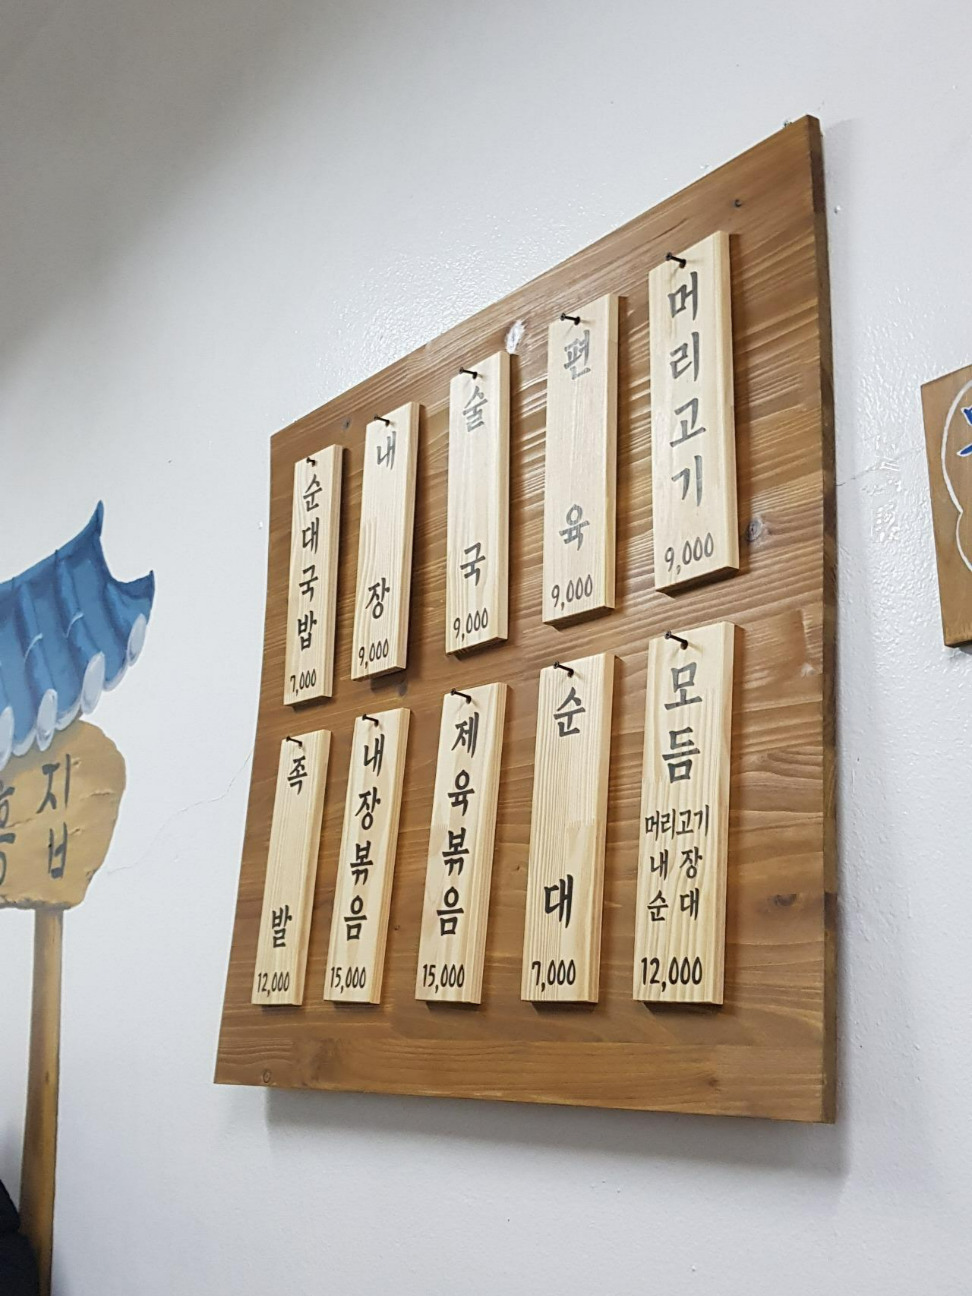 순대국밥
7,000
내장
9,000
술국
9,000
편육
9,000
머리고기
9,000
족발
12,000
내장볶음
15,000
제육볶음
15,000
순대
7,000
모듬
머리고기
내장
순대
12,000